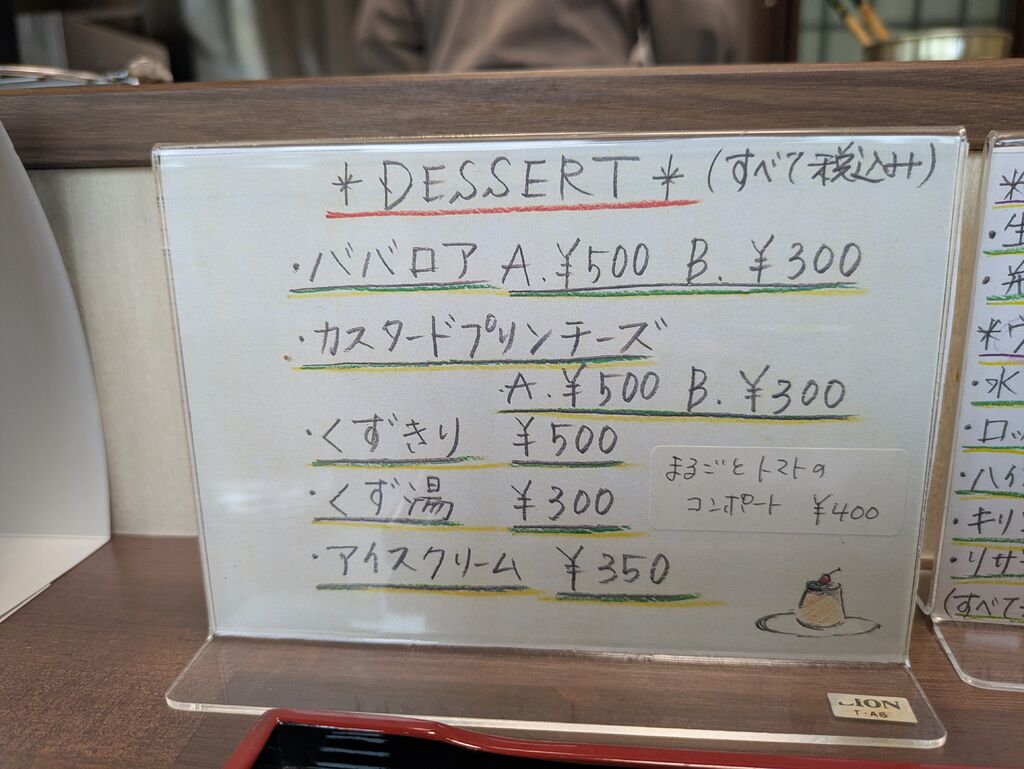 *DESSERT* (すべて税込み)
・ババロア A.¥500 B.¥300
・カスタードプリンチーズ
A.¥500 B.¥300
・くずきり ¥500
・くず湯 ¥300
まるごとトマトの
コンポート ¥400
・アイスクリーム ¥350
LION
T-A5
・生
・水
・ロッ
・ハイ
・キリン
・リサ
(すべて